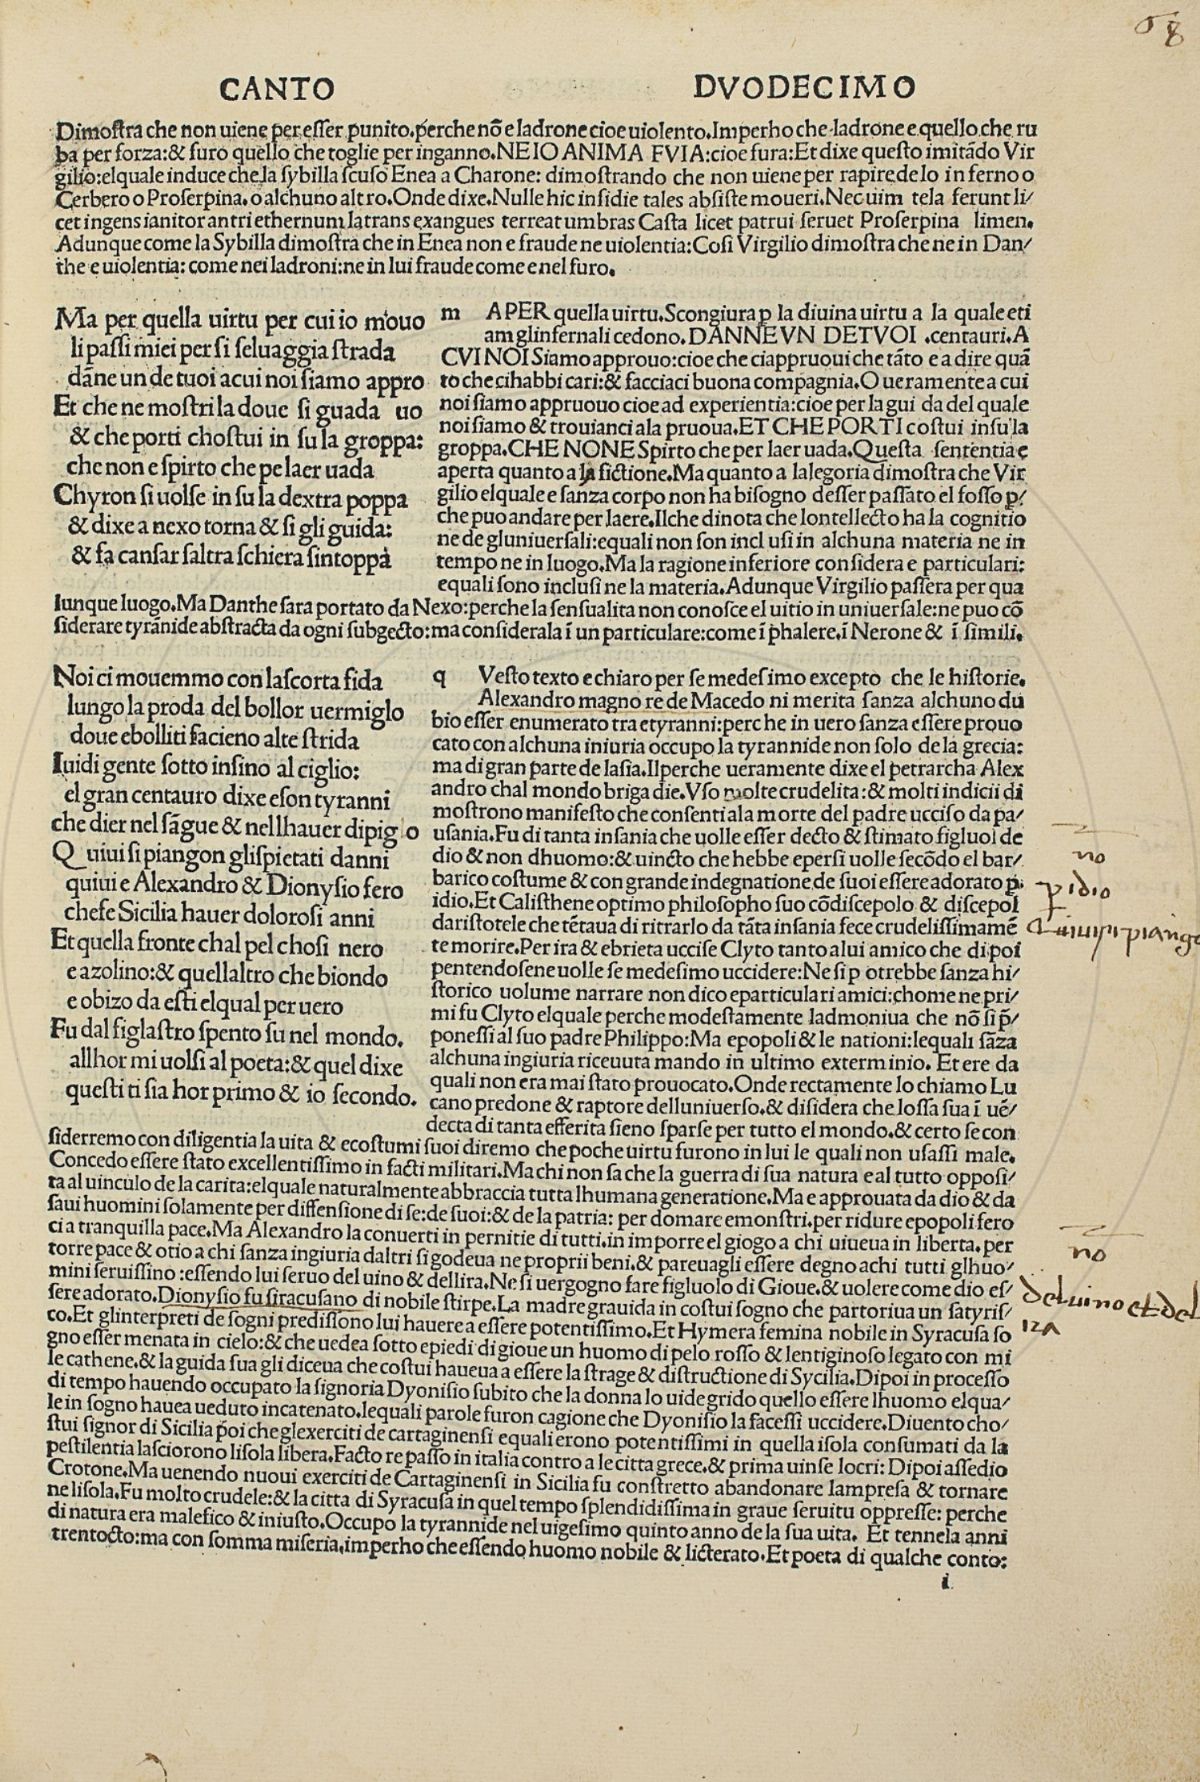 68
CANTO DVODECIMO
Dimoſtra che non uiene per eſſer punito.perche nõ e ladrone cioe uiolento.Imperho che ladrone e quello che ru
ba per forza:& furo quello che toglie per inganno.NE IO ANIMA FVIA:cioe fura:Et dixe queſto imitãdo Vir
gilio:elquale induce che la ſybilla ſcuſo Enea a Charone: dimoſtrando che non uiene per rapire de lo inferno o
Cerbero o Proſerpina.o alchuno altro.Onde dixe.Nulle hic inſidie tales abſiſte moueri.Nec uim tela ferunt li/
cet ingens ianitor antri ethernum latrans exangues terreat umbras Caſta licet patrui ſeruet Proſerpina limen.
Adunque come la Sybilla dimoſtra che in Enea non e fraude ne uiolentia:Coſi Virgilio dimoſtra che ne in Dan/
the e uiolentia: come nei ladroni:ne in lui fraude come e nel furo.
Ma per quella uirtu per cui io mouo
li paſſi miei per ſi ſeluaggia ſtrada
dãne un de tuoi a cui noi ſiamo appro
Et che ne moſtri la doue ſi guada uo
& che porti choſtui in ſu la groppa:
che non e ſpirto che pe laer uada
Chyron ſi uolſe in ſu la dextra poppa
& dixe a nexo torna & ſi gli guida:
& fa canſar ſaltra ſchiera ſintoppa
m A PER quella uirtu.Scongiura p la diuina uirtu a la quale eti
am glinfernali cedono.DANNE VN DE TVOI .centauri.A
CVI NOI Siamo approuo:cioe che ciappruoui che tãto e a dire quã
to che cihabbi cari:& facciaci buona compagnia.O ueramente a cui
noi ſiamo appruouo cioe ad experientia:cioe per la gui da del quale
noi ſiamo & trouianci ala pruoua.ET CHE PORTI coſtui inſu la
groppa.CHE NON E Spirto che per laer uada.Queſta ſententia e
aperta quanto a la fictione.Ma quanto a lalegoria dimoſtra che Vir
gilio elquale e ſanza corpo non ha biſogno deſſer paſſato el foſſo p/
che puo andare per laere.Ilche dinota che lontellecto ha la cognitio
ne de gluniuerſali:equali non ſon incl uſi in alchuna materia ne in
tempo ne in luogo.Ma la ragione inferiore conſidera e particulari:
equali ſono incluſi ne la materia.Adunque Virgilio paſſera per qua
lunque luogo.Ma Danthe ſara portato da Nexo:perche la ſenſualita non conoſce el uitio in uniuerſale:ne puo cõ
ſiderare tyrãnide abſtracta da ogni ſubgecto:ma conſiderala ĩ un particulare:come ĩ phalere.ĩ Nerone & ĩ ſimili.
Noi ci mouemmo con la ſcorta fida
lungo la proda del bollor uermiglo
doue ebolliti facieno alte ſtrida
Iuidi gente ſotto inſino al ciglio:
el gran centauro dixe eſon tyranni
che dier nel ſãgue & nellhauer dipiglo
Quiui ſi piangon gliſpietati danni
quiui e Alexandro & Dionyſio fero
cheſe Sicilia hauer doloroſi anni
Et quella fronte chal pel choſi nero
e azolino:& quellaltro che biondo
e obizo da eſti elqual per uero
Fu dal figlaſtro ſpento ſu nel mondo.
allhor mi uolſi al poeta:& quel dixe
queſti ti ſia hor primo & io ſecondo.
q Veſto texto e chiaro per ſe medeſimo excepto che le hiſtorie.
Alexandro magno re de Macedo ni merita ſanza alchuno du
bio eſſer enumerato tra etyranni:perche in uero ſanza eſſere prouo
cato con alchuna iniuria occupo la tyrannide non ſolo de la grecia:
ma di gran parte de laſia.Ilperche ueramente dixe el petrarcha Alex
andro chal mondo briga die.Vſo molte crudelita:& molti indicii di
moſtrono manifeſto che conſenti ala morte del padre ucciſo da pa/
uſania.Fu di tanta inſania che uolle eſſer decto & ſtimato figluol de
dio & non dhuomo:& uincto che hebbe eperſi uolle ſecõdo el bar/
barico coſtume & con grande indegnatione de ſuoi eſſere adorato p
idio.Et Caliſthene optimo philoſopho ſuo cõdiſcepolo & diſcepol
dariſtotele che tẽtaua di ritrarlo da tãta inſania fece crudeliſſimamẽ
te morire.Per ira & ebrieta ucciſe Clyto tanto a lui amico che di poi
pentendoſene uolle ſe medeſimo uccidere:Ne ſi p otrebbe ſanza hi/
ſtorico uolume narrare non dico eparticulari amici:chome ne pri/
mi fu Clyto elquale perche modeſtamente ladmoniua che nõ ſi p̃/
poneſſi al ſuo padre Philippo:Ma epopoli & le nationi:lequali ſãza
alchuna ingiuria riceuuta mando in ultimo exterminio. Et ere da
quali non era mai ſtato prouocato.Onde rectamente lo chiamo Lu
cano predone & raptore delluniuerſo.& diſidera che loſſa ſua ĩ uẽ/
decta di tanta efferita ſieno ſparſe per tutto el mondo.& certo ſe con
ſiderremo con diligentia la uita & ecoſtumi ſuoi diremo che poche uirtu furono in lui le quali non uſaſſi male.
Concedo eſſere ſtato excellentiſſimo in facti militari.Ma chi non ſa che la guerra di ſua natura e al tutto oppoſi/
ta al uinculo de la carita:elquale naturalmente abbraccia tutta lhumana generatione.Ma e approuata da dio & da
ſaui huomini ſolamente per diffenſione di ſe:de ſuoi:& de la patria: per domare emonſtri.per ridure epopoli fero
ci a tranquilla pace.Ma Alexandro la conuerti in pernitie di tutti.in imporre el giogo a chi uiueua in liberta.per
torre pace & otio a chi ſanza ingiuria daltri ſi godeua ne proprii beni.& pareuagli eſſere degno achi tutti glhuo/
mini ſeruiſſino:eſſendo lui ſeruo del uino & dellira.Ne ſi uergogno fare figluolo di Gioue.& uolere come dio eſ/
ſere adorato.Dionyſio fu ſiracuſano di nobile ſtirpe.La madre grauida in coſtui ſogno che partoriua un ſatyriſ/
co.Et glinterpreti de ſogni prediſſono lui hauere a eſſere potentiſſimo.Et Hymera femina nobile in Syracuſa ſo
gno eſſer menata in cielo:& che uedea ſotto epiedi di gioue un huomo di pelo roſſo & lentiginoſo legato con mi
le cathene.& la guida ſua gli diceua che coſtui haueua a eſſere la ſtrage & diſtructione di Sycilia.Dipoi in proceſſo
di tempo hauendo occupato la ſignoria Dyoniſio ſubito che la donna lo uide grido quello eſſere lhuomo elqua/
le in ſogno hauea ueduto incatenato.lequali parole furon cagione che Dyoniſio la faceſſi uccidere.Diuento cho/
ſtui ſignor di Sicilia poi che glexerciti de cartaginenſi equali erono potentiſſimi in quella iſola conſumati da la
peſtilentia laſciorono liſola libera.Facto re paſſo in italia contro a le citta grece.& prima uinſe locri: Dipoi aſſedio
Crotone.Ma uenendo nuoui exerciti de Cartaginenſi in Sicilia fu conſtretto abandonare lampreſa & tornare
ne liſola.Fu molto crudele:& la citta di Syracuſa in quel tempo ſplendidiſſima in graue ſeruitu oppreſſe: perche
di natura era malefico & iniuſto.Occupo la tyrannide nel uigeſimo quinto anno de la ſua uita. Et tennela anni
trentocto:ma con ſomma miſeria.imperho che eſſendo huomo nobile & licterato.Et poeta di qualche conto:
i
no
pidio
Quiuisi piango
no
del uino et del
ira